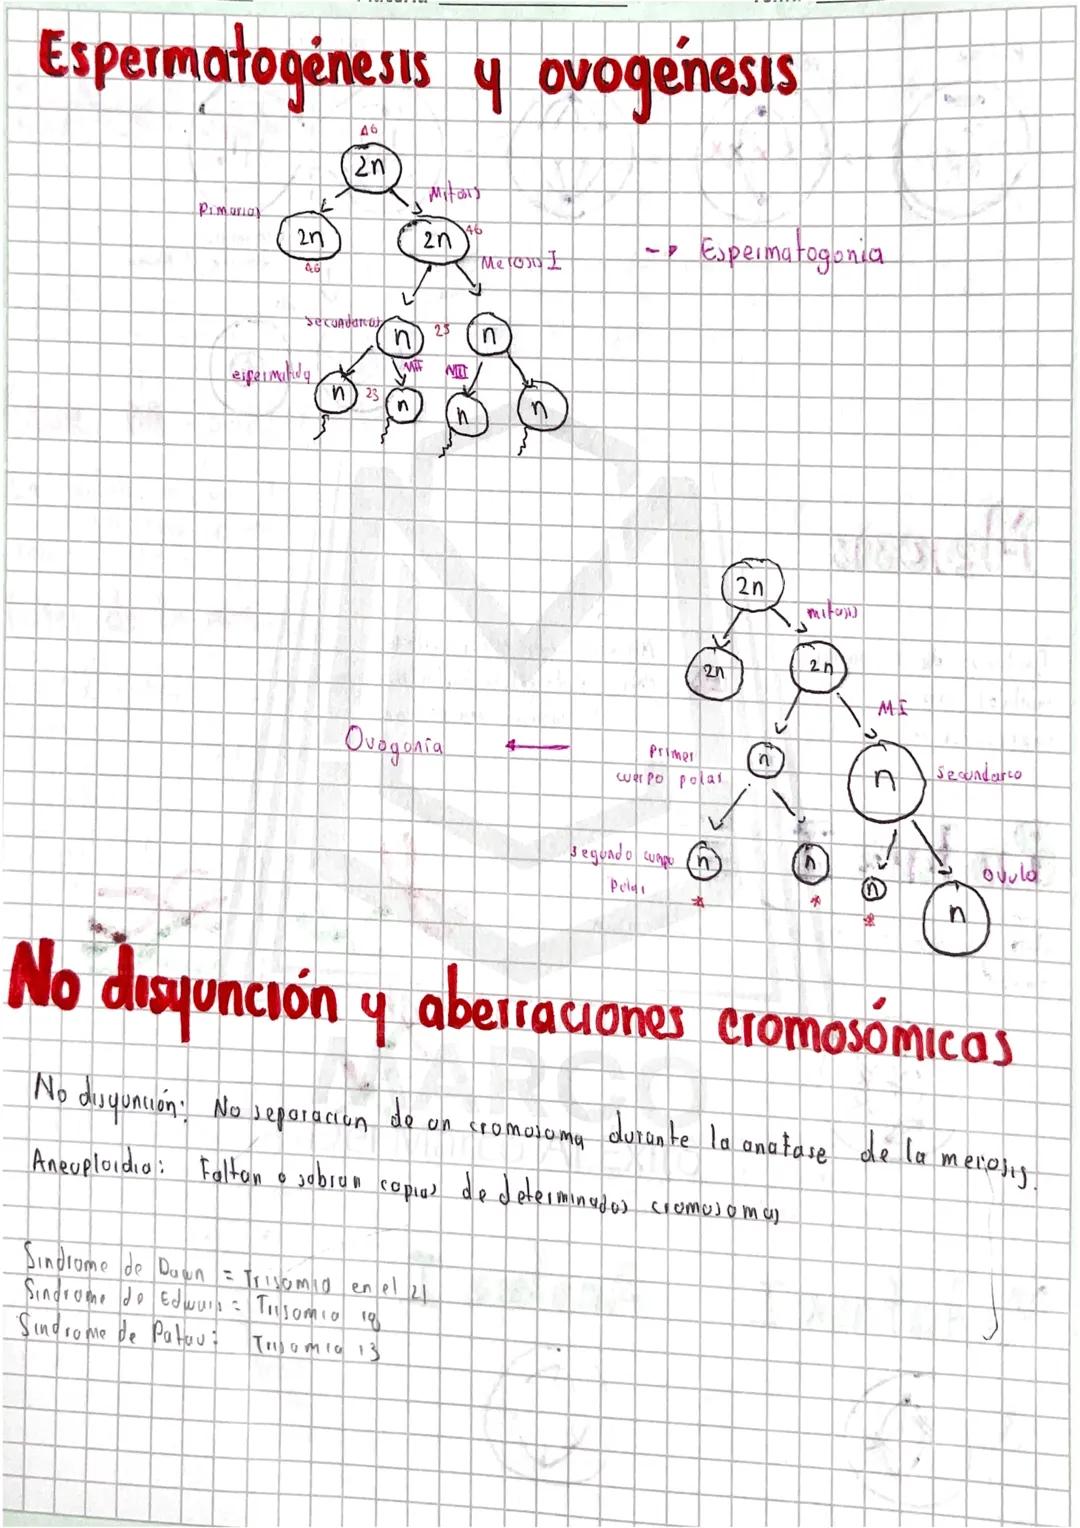 Espermatogénesis y ovogénesis
46
2n
Mitosis
Primarias
2n
2n
46
46
Meiosis I
--> Espermatogonia
secundarias
n
23
n
espermatida
MII
MII
n
23
n
n
n
2n
mitosis
2n
2n
MI
Ovogonia
Primer
cuerpo polar
n
n
secundario
segundo cuerpo
Polar
n
n
n
ovulo
n
No disyunción y aberraciones cromosómicas
No disyunción: No separacion de un cromosoma durante la anafase de la meiosis.
Aneuploidia: Faltan o sobran copias de determinados cromosomas
Sindrome de Down = Trisomia en el 21
Sindrome de Edwars = Trisomia 18
Sindrome de Patau: Trisomia 13
MARCO